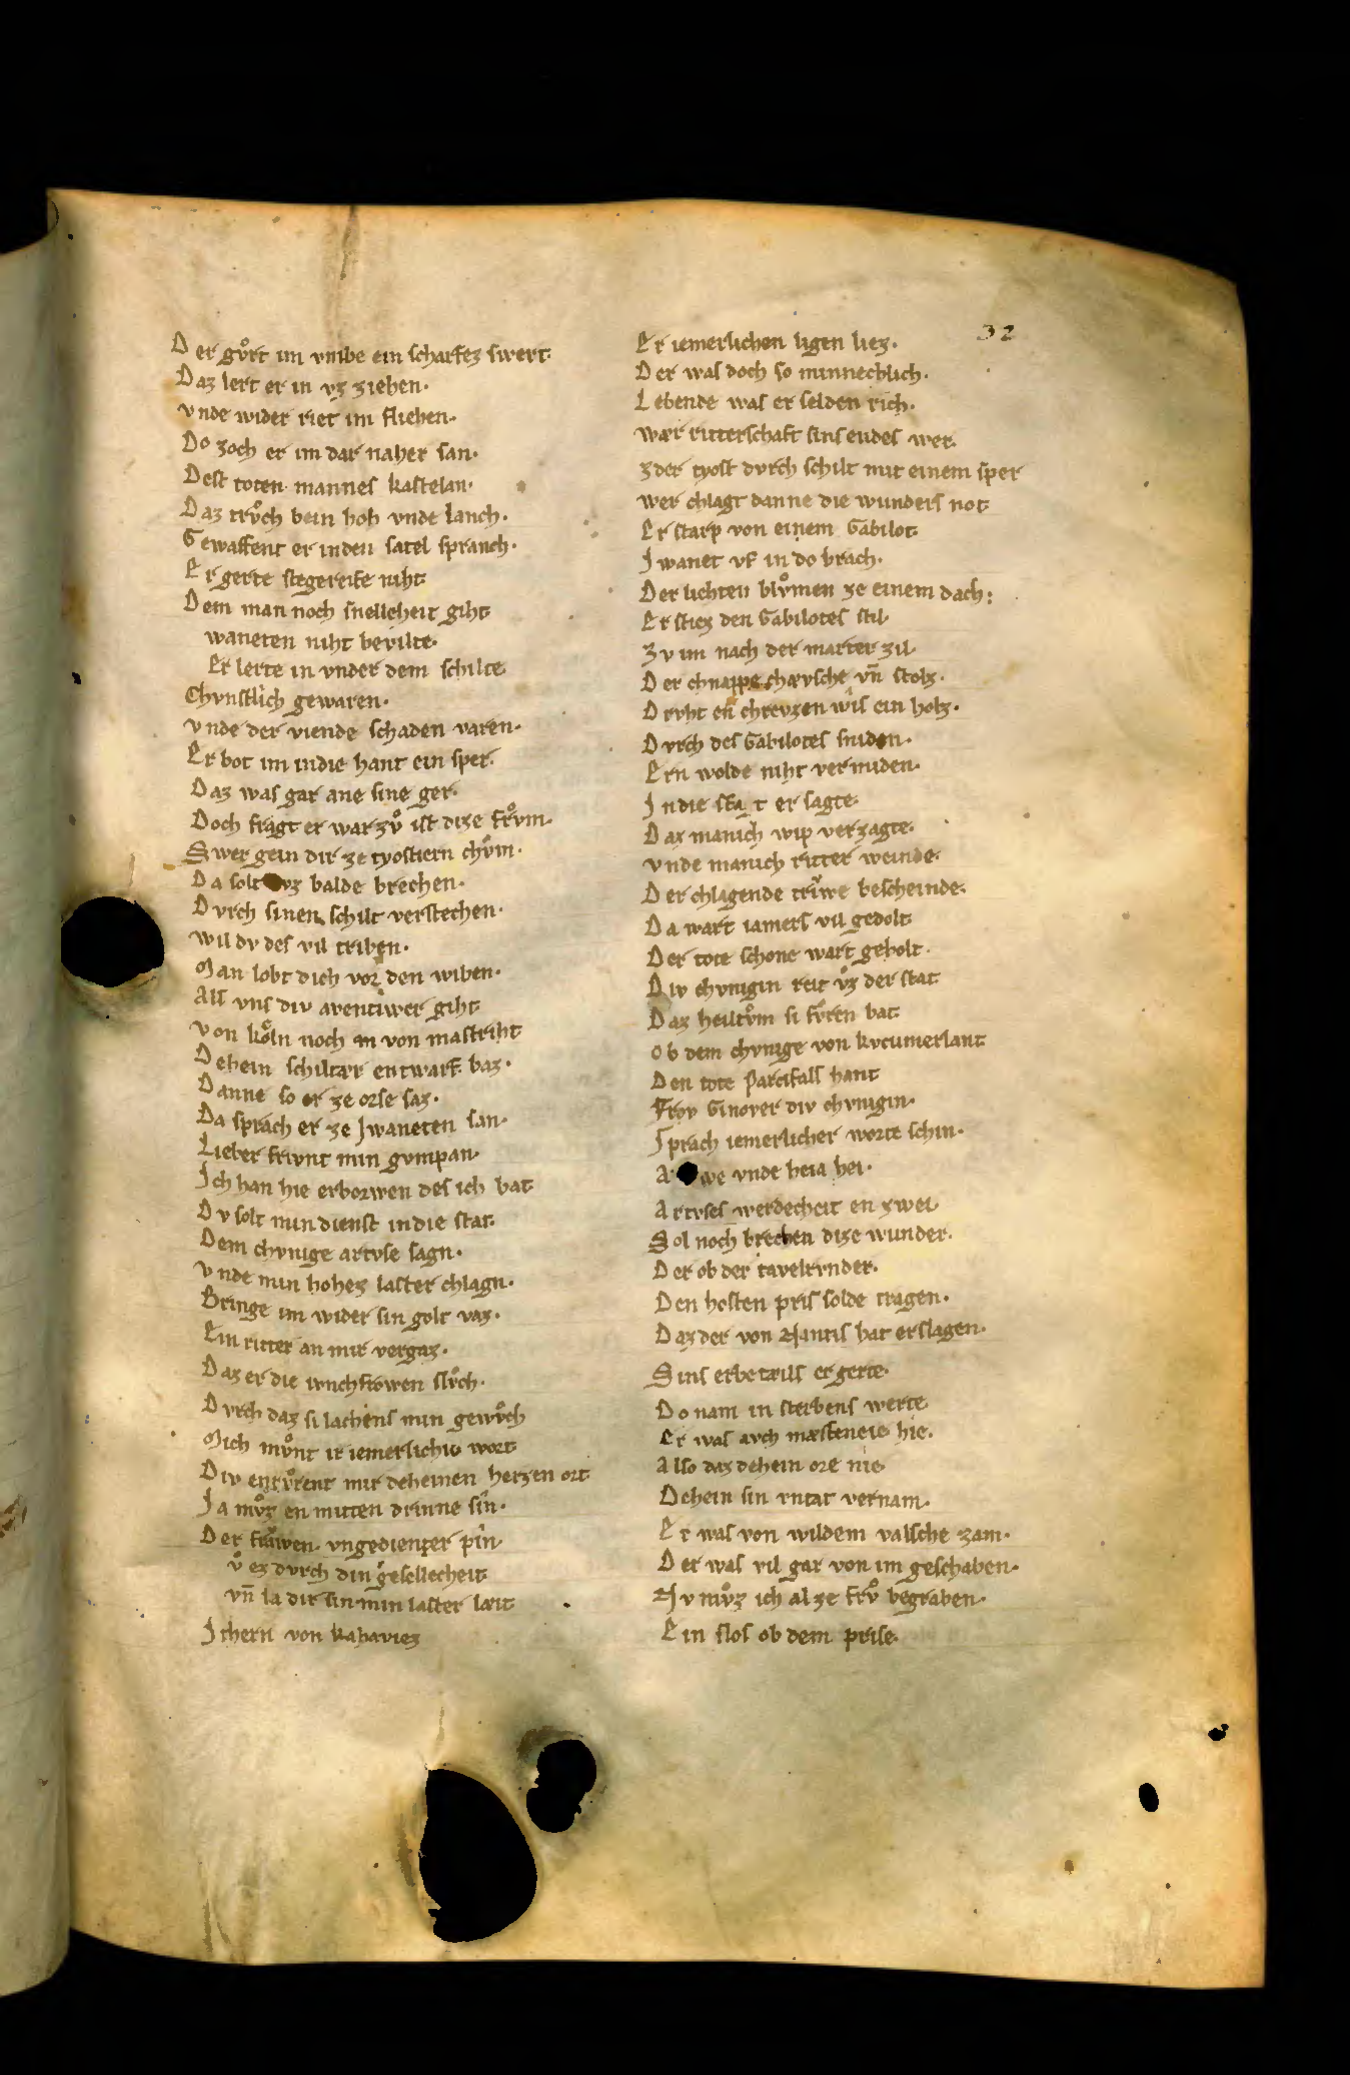 32
Der gůrt im vmbe ein scharfez swert·
Daz lert er in vz ziehen·
vnde wider riet im fliehen·
Do zoch er im dar naher san·
Dest toten mannes kastelan·
Daz trůch bein hoh vnde lanch·
Gewaffent er inden satel spranch·
Er gerte stegereife niht·
Dem man noch snellcheit giht·
waneten niht bevilte·
Er lerte in vnder dem schilte
Chvnstlich gewaren·
vnde der viende schaden varen·
Er bot im indie hant ein sper·
Daz was gar ane sine ger·
Doch fragt er war zů ist dize frům·
Swer gein dir ze tyostiern chům·
Da solt vz balde brechen·
Dvrch sinen schilt verstechen·
wil dv des vil triben·
Man lobt dich vor den wiben·
Als vns div aventiwer giht
von kŏln noch von mastriht
Dehein schiltær entwarf baz·
Danne so er ze orse saz·
Da sprach er ze Jwaneten san·
Lieber frivnt min gvmpan·
Ich han hie erborwen des ich bat
Dv solt min dienst indie stat·
Dem chvnige artvse sagn·
vnde min hohez laster chlagn·
Bringe im wider sin golt vaz·
Ein ritter an mir vergaz·
Daz er die ivnchfrowen slůch·
Dvrch daz si lachens min gewůch
Mich můnt ir iemerlichiv wort
Div enrůrent mir deheinen herzen ort
Ja můz en mitten drinne sin·
Der frawen vngedienter pin·
ů ez dvrch din gesellecheit
vn̄ la dir sin min laster læit
Ithern von kahaviez
Er iemerlichen ligen liez·
Der was doch so minnechlich·
Lebende was er selden rich·
wær ritterschaft sins endes wer·
zder tyost dvrch schilt mit einem sper
wer chlagt danne die wunders not
Er starp von einem Gabilot·
Jwanet vf in do brach·
Der lichten blůmen ze einem dach:
Er stiez den Gabilotes stil·
zv im nach der marter zil·
Der chnappe chævsche vn̄ stolz·
Drvht en chrevzen wis ein holz·
Dvrch des Gabilotes sniden·
Ern wolde niht vermiden·
Jn die stat er sagte·
Daz manich wip verzagte·
vnde manich ritter weinde·
Der chlagende triwe bescheinde·
Da wart iamers vil gedolt
Der tote schone wart geholt·
Div chvnigin reit ůz der stat
Daz heiltům si fůren bat·
ob dem chvnige von kvcumerlant
Den tote Parcifals hant
Frov Ginover div chvnigin·
Sprach iemerlicher worte schin·
A we vnde heia hei·
Artvses werdecheit en zwei·
Sol noch brechen dize wunder·
Der ob der tavelrvnder·
Den hosten pris solde tragen·
Daz der von Nantis hat erslagen·
Sins erbetæils er gerte·
Do nam in sterbens werte
Er was avch mæsteneie hie·
Also daz dehein ore nie
Dehein sin vntat vernam·
Er was von wildem valsche zam·
Der was vil gar von im geschaben·
Nv můz ich al ze frů begraben·
Ein slos ob dem prise·